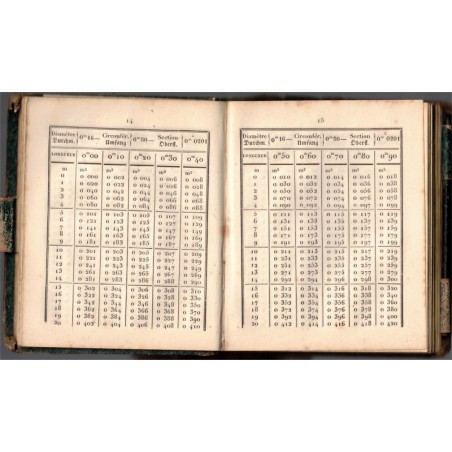 14
Diamètre 0m 16— Circonfér. 0m 50— Section 0m² 0201
Durchm. Umfang Oberfl.
LONGUEUR 0m00 0m10 0m20 0m30 0m40
m m³ m³ m³ m³ m³
0 0 000 0 002 0 004 0 006 0 008
1 0 020 0 022 0 024 0 026 0 028
2 0 040 0 042 0 044 0 046 0 048
3 0 060 0 062 0 064 0 066 0 068
4 0 080 0 082 0 084 0 086 0 088
5 0 101 0 103 0 105 0 107 0 109
6 0 121 0 123 0 125 0 127 0 129
7 0 141 0 143 0 145 0 147 0 149
8 0 161 0 163 0 165 0 167 0 169
9 0 181 0 183 0 185 0 187 0 189
10 0 201 0 203 0 205 0 207 0 209
11 0 221 0 223 0 225 0 227 0 229
12 0 241 0 243 0 245 0 247 0 249
13 0 261 0 263 0 265 0 267 0 269
14 0 281 0 283 0 286 0 288 0 290
15 0 302 0 304 0 306 0 308 0 310
16 0 322 0 324 0 326 0 328 0 330
17 0 342 0 344 0 346 0 348 0 350
18 0 362 0 364 0 366 0 368 0 370
19 0 382 0 384 0 386 0 388 0 390
20 0 402 0 404 0 406 0 408 0 410
15
Diamètre 0m 16— Circonfér. 0m 50— Section 0m² 0201
Durchm. Umfang Oberfl.
LONGUEUR 0m50 0m60 0m70 0m80 0m90
m m³ m³ m³ m³ m³
0 0 010 0 012 0 014 0 016 0 018
1 0 030 0 032 0 034 0 036 0 038
2 0 050 0 052 0 054 0 056 0 058
3 0 070 0 072 0 074 0 076 0 078
4 0 090 0 093 0 095 0 097 0 099
5 0 111 0 113 0 115 0 117 0 119
6 0 131 0 133 0 135 0 137 0 139
7 0 151 0 153 0 155 0 157 0 159
8 0 171 0 173 0 175 0 177 0 179
9 0 191 0 193 0 195 0 197 0 199
10 0 211 0 213 0 215 0 217 0 219
11 0 231 0 233 0 235 0 237 0 239
12 0 251 0 253 0 255 0 257 0 259
13 0 271 0 273 0 275 0 277 0 279
14 0 292 0 294 0 296 0 298 0 300
15 0 312 0 314 0 316 0 318 0 320
16 0 332 0 334 0 336 0 338 0 340
17 0 352 0 354 0 356 0 358 0 360
18 0 372 0 374 0 376 0 378 0 380
19 0 392 0 394 0 396 0 398 0 400
20 0 412 0 414 0 416 0 418 0 420